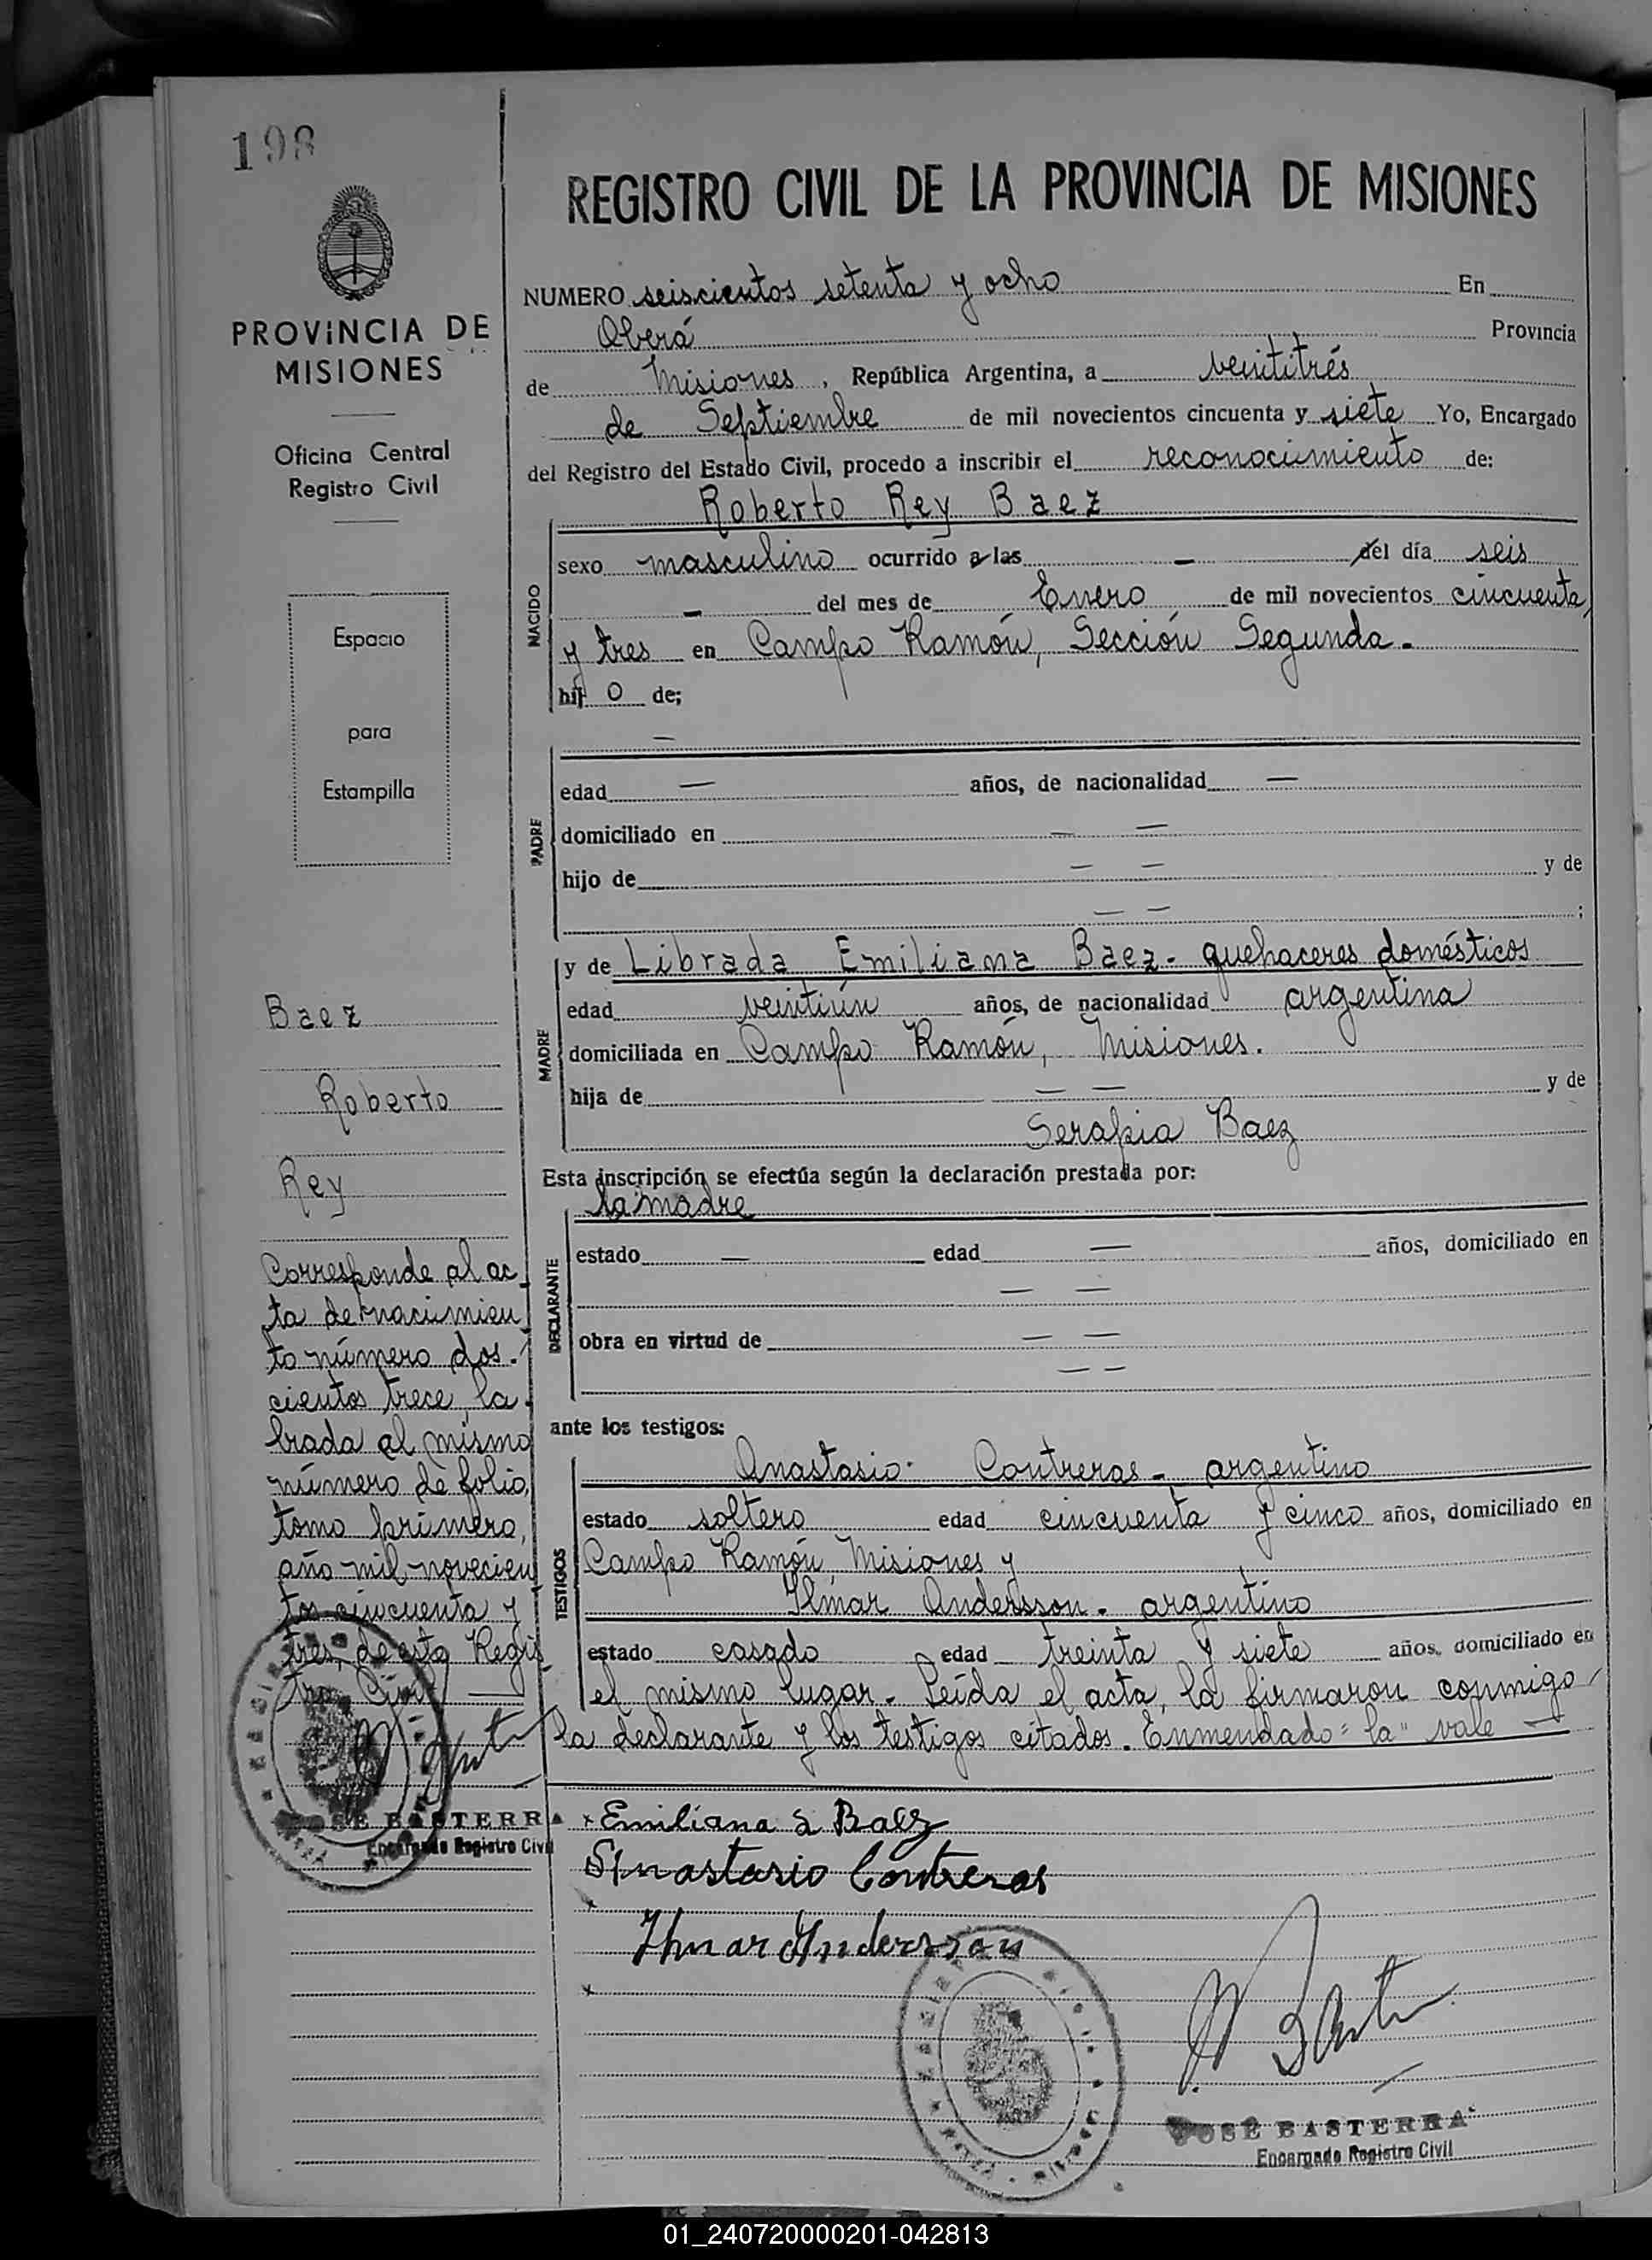 198
REGISTRO CIVIL DE LA PROVINCIA DE MISIONES
PROVINCIA DE
MISIONES
Oficina Central
Registro Civil
Espacio
para
Estampilla
NUMERO seiscientos setenta y ocho En
Oberá Provincia
de Misiones, República Argentina, a veintitrés
de Septiembre de mil novecientos cincuenta y siete Yo, Encargado
del Registro del Estado Civil, procedo a inscribir el reconocimiento de:
Roberto Rey Baez
NACIDO
sexo masculino ocurrido a las — del día seis
— del mes de Enero de mil novecientos cincuenta
y tres en Campo Ramón, Sección Segunda.-
hijo de;
PADRE
—
edad — años, de nacionalidad —
domiciliado en — —
hijo de — — y de
— — ;
MADRE
y de Librada Emiliana Baez- quehaceres domésticos
edad veintiún años, de nacionalidad argentina
domiciliada en Campo Ramón, Misiones.
hija de — — y de
Serapia Baez
Esta inscripción se efectúa según la declaración prestada por:
la madre
DECLARANTE
estado — edad — años, domiciliado en
— —
obra en virtud de — —
— —
ante los testigos:
TESTIGOS
Anastasio Contreras - argentino
estado soltero edad cincuenta y cinco años, domiciliado en
Campo Ramón, Misiones y
Ilmar Andersson - argentino
estado casado edad treinta y siete años, domiciliado en
el mismo lugar.- Leída el acta, la firmaron conmigo
la declarante y los testigos citados. Enmendado "la" vale —
Emiliana S Baez
Anastasio Contreras
Ilmar Andersson
JOSÉ BASTERRA
Encargado Registro Civil
Baez
Roberto
Rey
Corresponde al ac-
ta de nacimien-
to número dos-
cientos trece, la-
brada al mismo
número de folio,
tomo primero,
año mil novecien-
tos cincuenta y
tres, de esta Regis-
tro Civil —
JOSÉ BASTERRA
Encargado Registro Civil
01_240720000201-042813